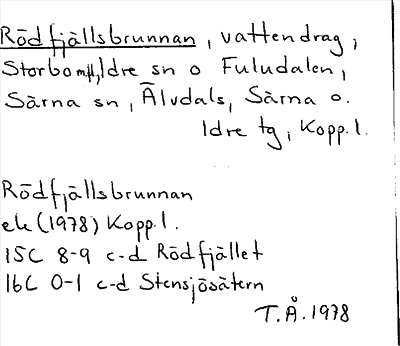 Rödfjällsbrunnan, vattendrag,
Storbo mfl, Idre sn o Fuludalen,
Särna sn, Älvdals, Särna o.
Idre tg, Kopp. l.
Rödfjällsbrunnan
ek (1978) Kopp. l.
15C 8-9 c-d Rödfjället
16C 0-1 c-d Stensjösätern
T.Å. 1978